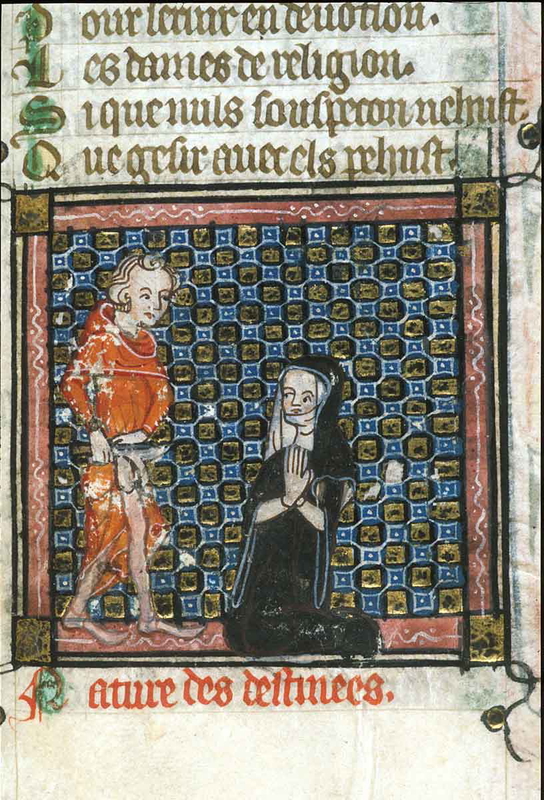 P our seruir en deuotion.
L es dames de religion.
S i que nuls souspecon nehust.
Q ue gesir auec els pehust.
N ature des destinees.